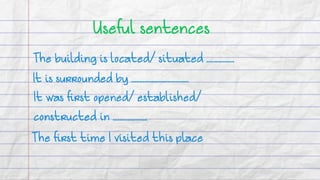 Useful sentences
The building is located/ situated ______
It is surrounded by ____________
It was first opened/ established/
constructed in _______
The first time I visited this place